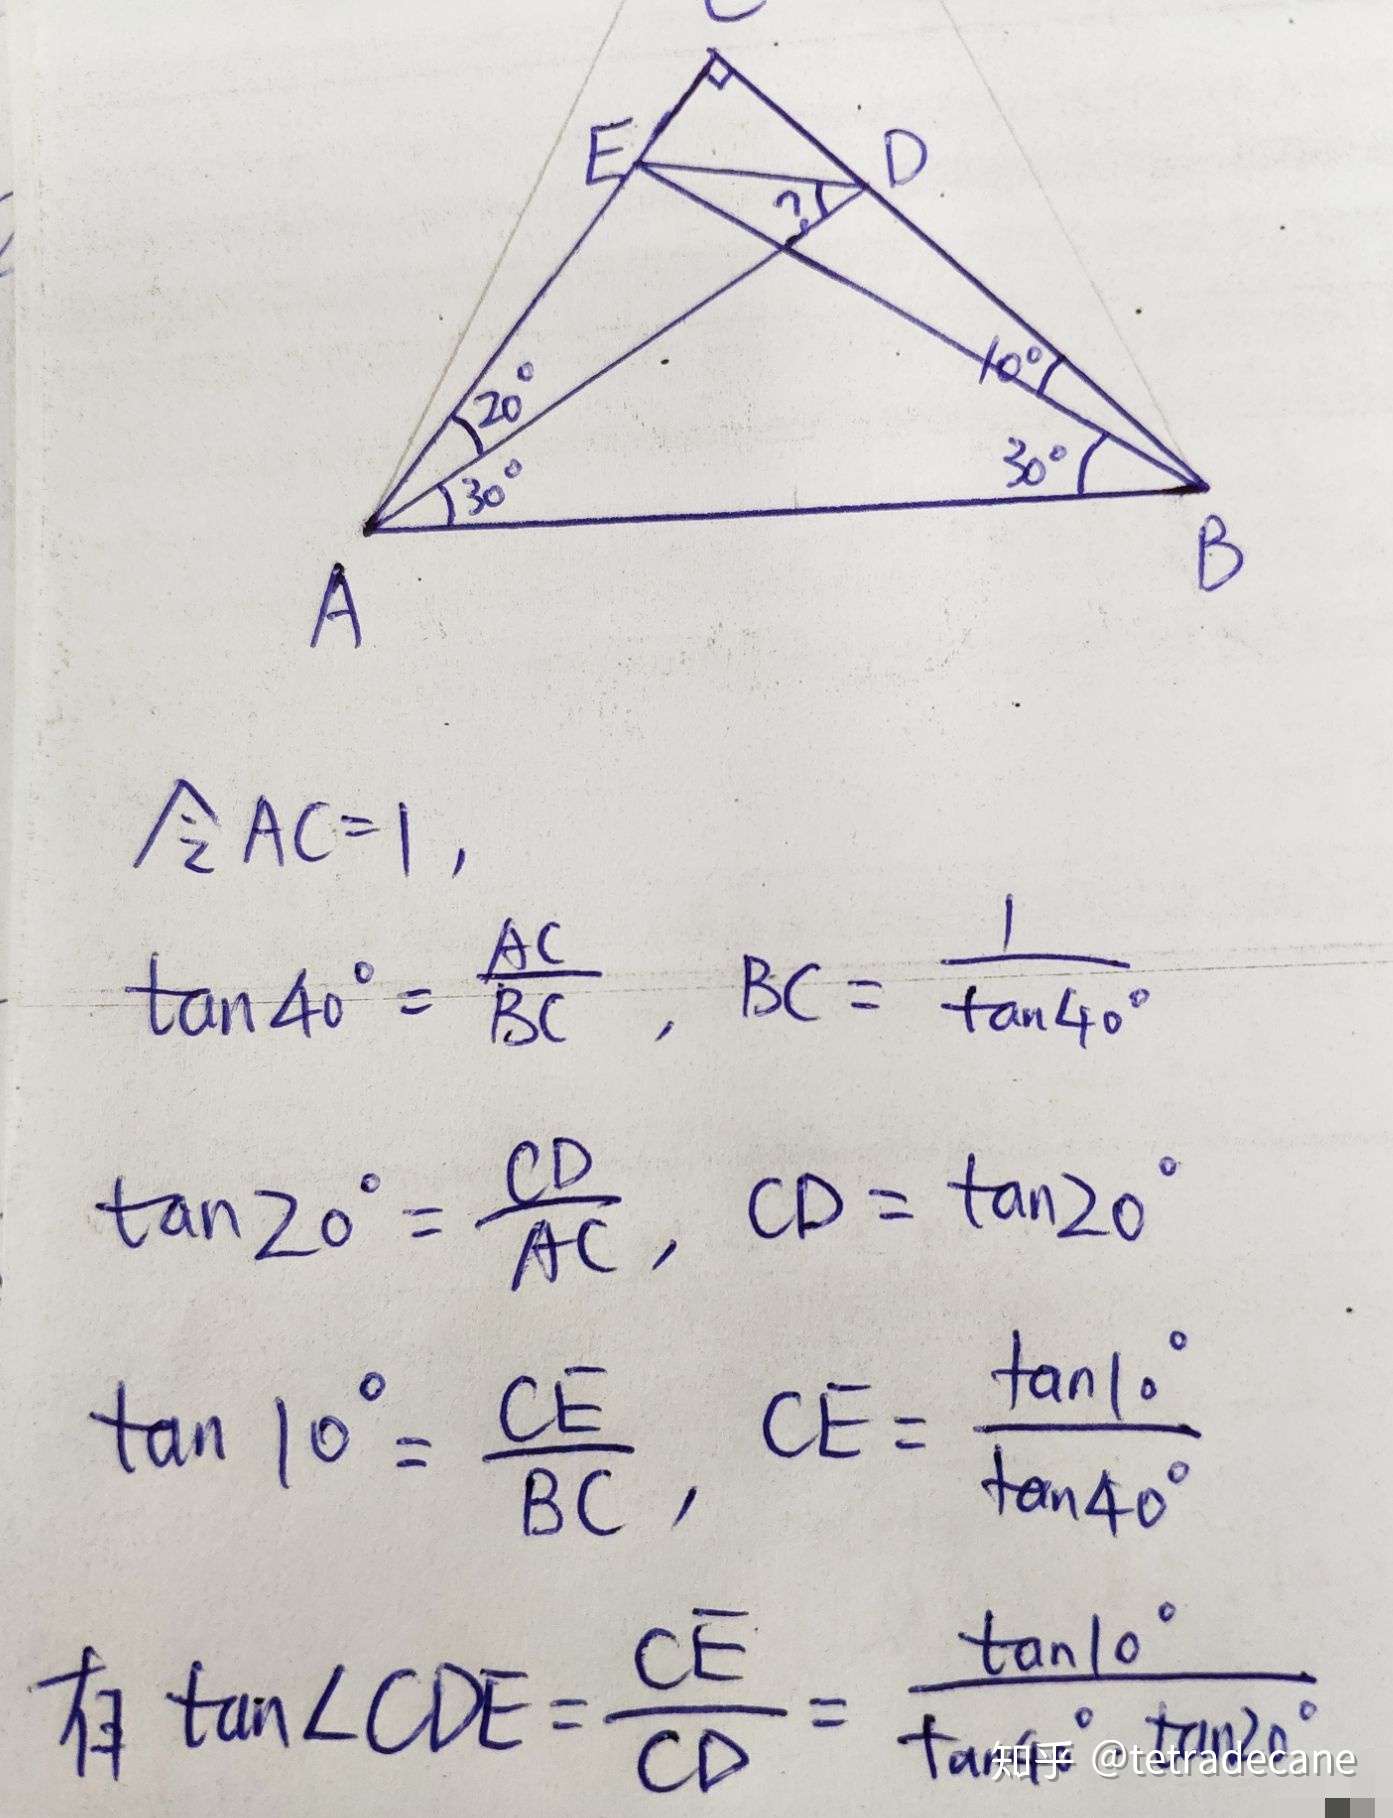 C
E
D
?
20°
10°
30°
30°
A
B
令AC=1,
tan40°= AC/BC , BC= 1/tan40°
tan20°= CD/AC , CD = tan20°
tan10°= CE/BC , CE= tan10°/tan40°
有 tan∠CDE= CE/CD = tan10°/tan40° tan20°
知乎 @tetradecane